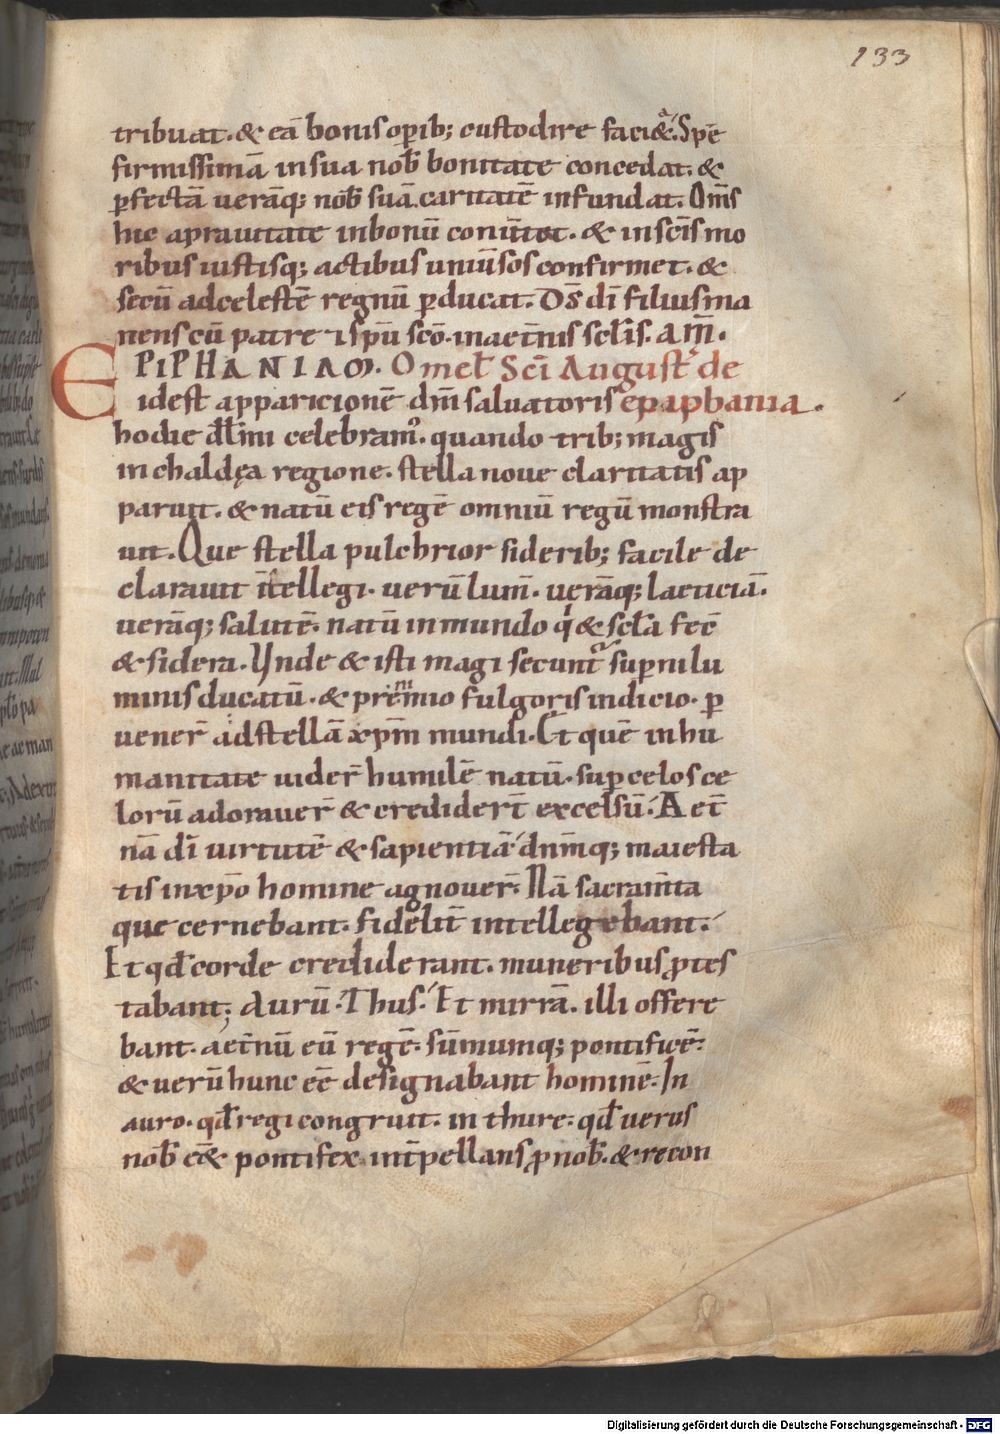 133
tribuat. & eā bonis op̄ib; custodire faciat. Spē
firmissimā in sua nob̄ bonitate concedat. &
p̄fectā uerāq; nob̄ suā caritatē infundat. Om̄s
hic aprauitate inbonū conūtat. & insc̄is mo
ribus iustisq; actibus uniūsos confirmet. &
secū adcelestē regnū p̄ducat. D̄s dī filius ma
nens cū patre ⁊ sp̄u sc̄o. inaet̄nis sc̄lis. am̄.
EPIPHANIAM. Omel̄ Sc̄i August̄ de
idest apparicionē dn̄i saluatoris epiaphania.
hodie dīlmi celebram᾽. quando trib; magis
in chaldęa regione. stella noue claritatis ap
paruit. & natū eis regē omniū regū monstra
uit. Que stella pulchrior siderib; facile de
clarauit īntellegi. uerū lum̄. uerāq; laeticiā.
uerāq; salutē. natū in mundo qͥ & scl̄a fec̄
& sidera. Vnde & isti magi secunt᾽ sup̄ni lu
minis ducatū. & prēmmio fulgoris indicio. p̄
uener̄ adstellā xp̄m mundi. Et quē in hu
manitate uider̄ humilē natū. sup celos ce
lorū adorauer̄ & credidert̄ excelsū. Aet̄
nā dī uirtutē & sapientiā dn̄mq; maiesta
tis in xp̄o homine agnouer̄. Nā sacram̄ta
que cernebant. fidelit̄ intellegebant.
Et qd̄ corde crediderant. muneribus p̄tes
tabant; Aurū. Thus. Et mirrā. illi offere
bant. aet̄nū eū regē. sūmumq; pontificē.
& uerū hunc eē designabant hominē. In
auro. qd̄ regi congruit. in thure. qd̄ uerus
nob̄ e& pontifex int̄pellans p̄ nob̄. & recon
Digitalisierung gefördert durch die Deutsche Forschungsgemeinschaft - DFG